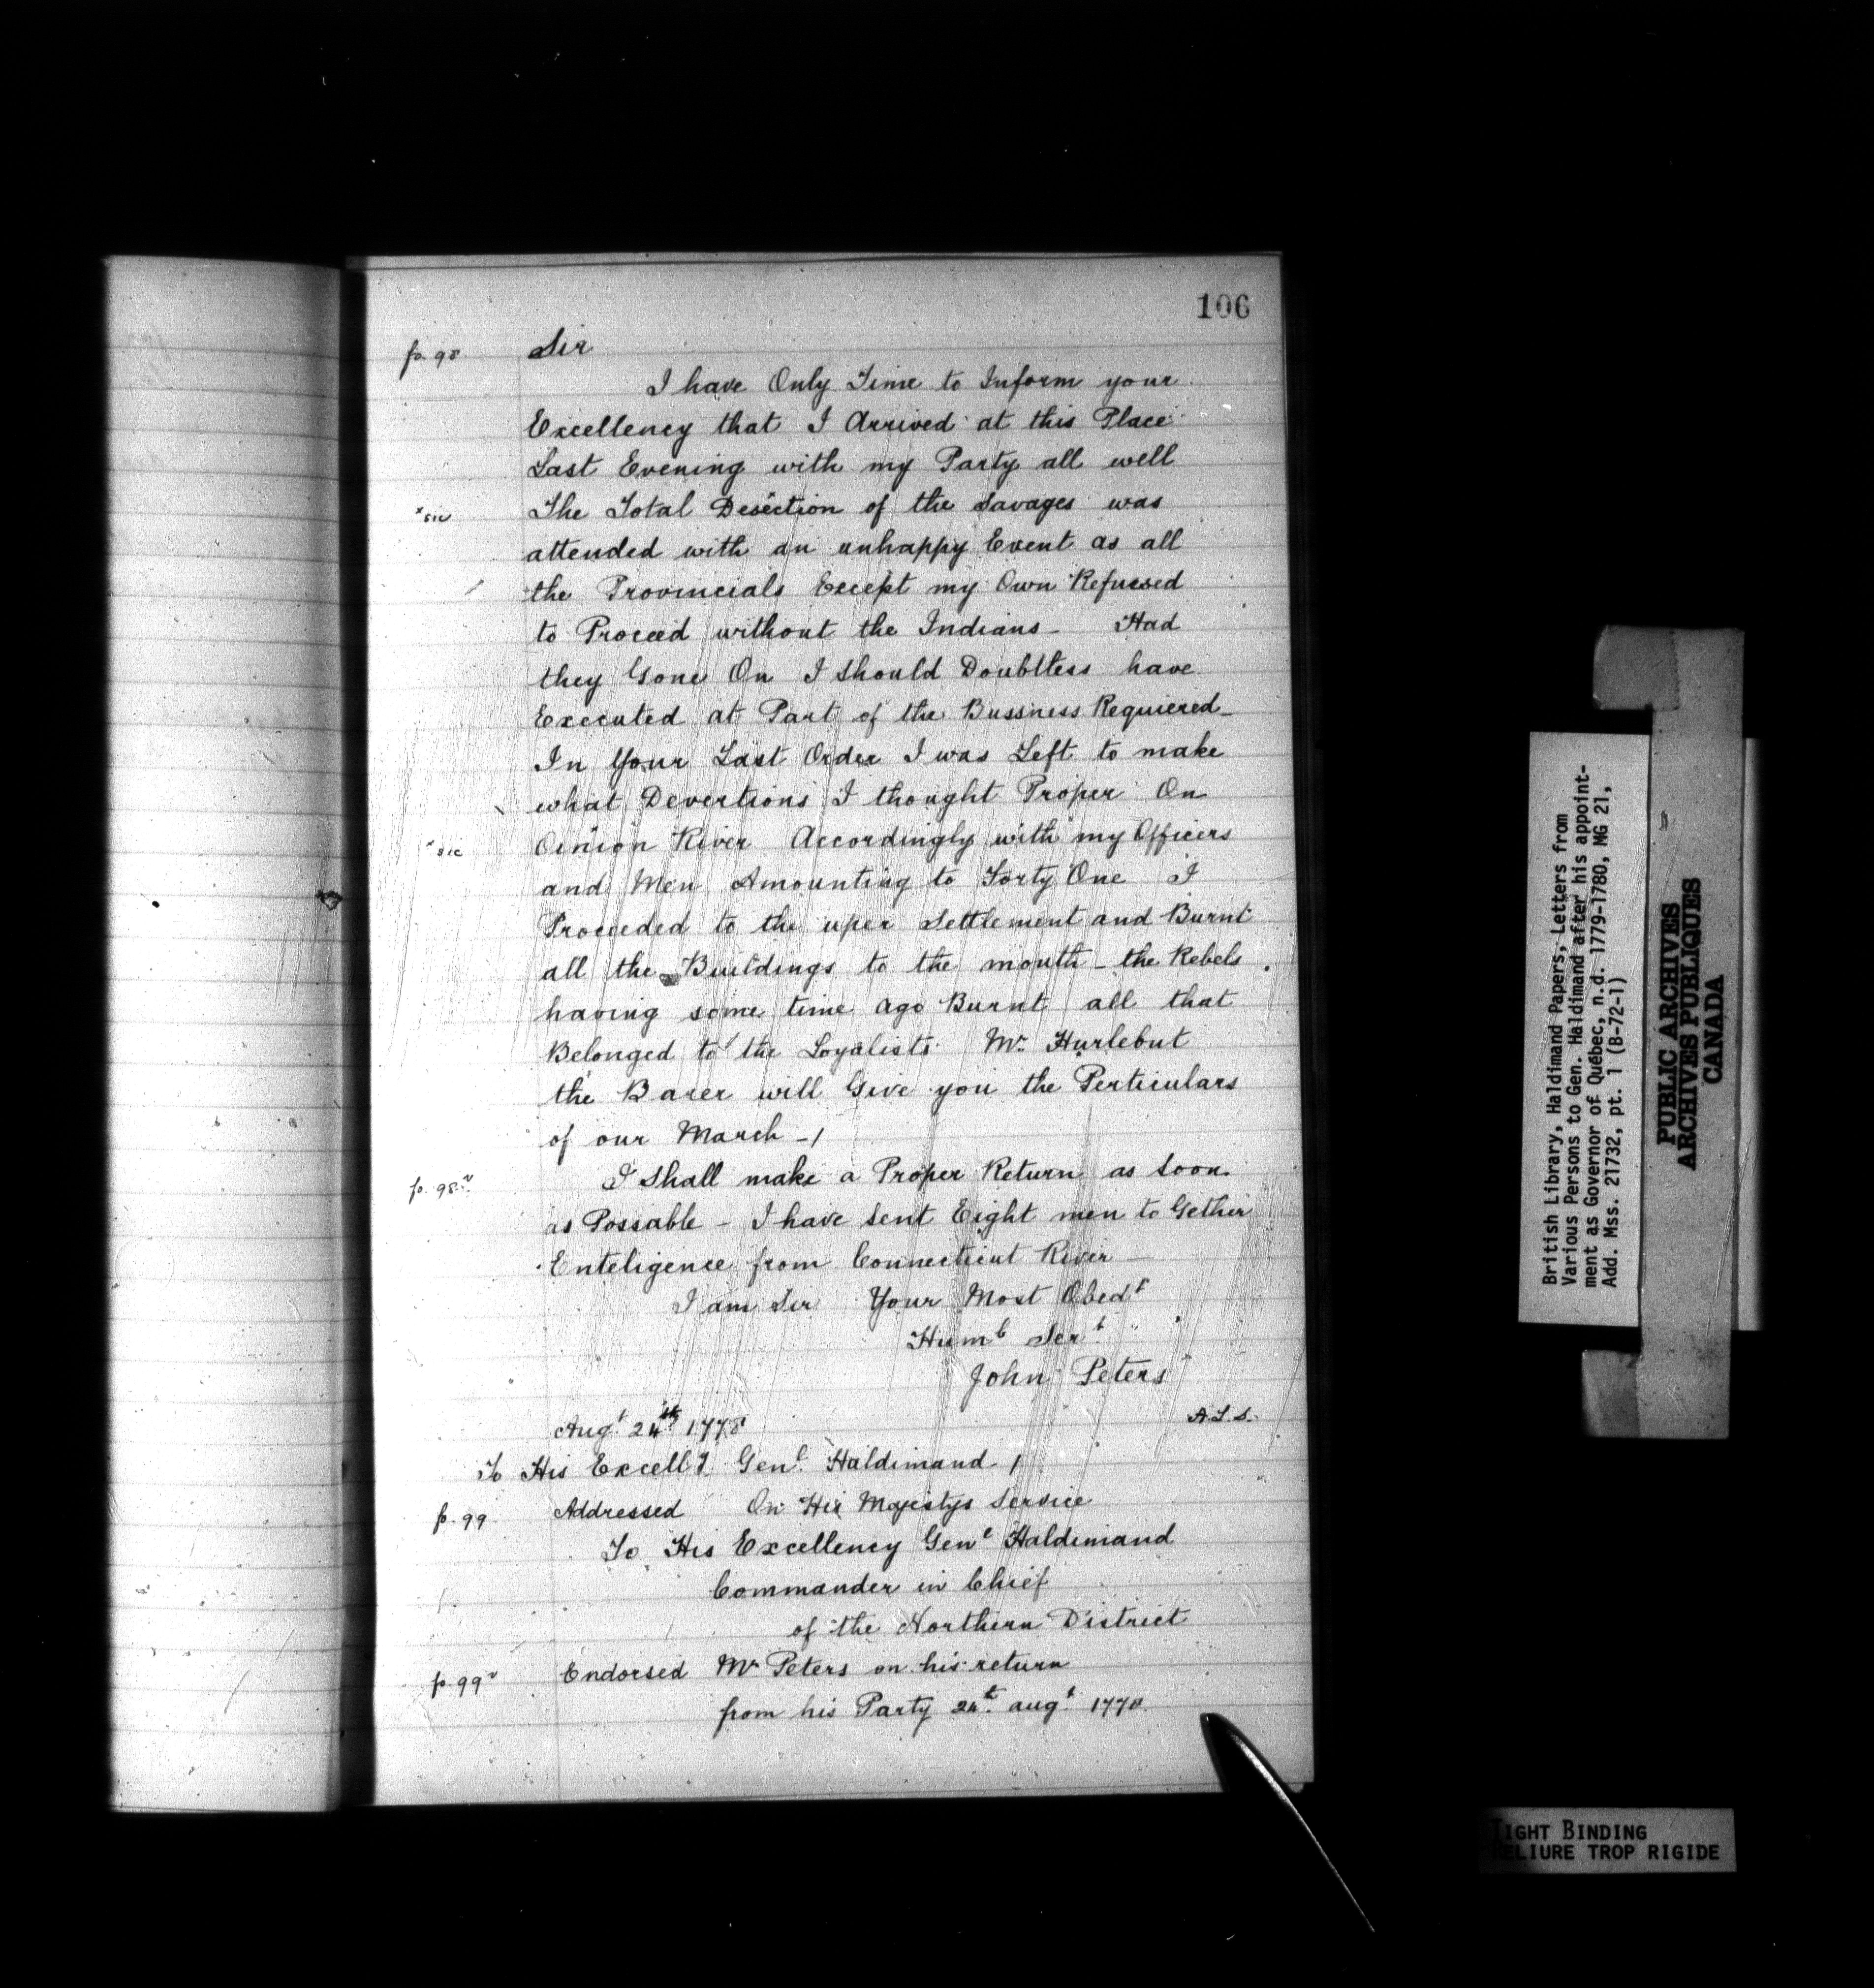 106
fo. 98 Sir
I have Only Time to Inform your
Excellency that I Arrived at this Place
Last Evening with my Party all well
x sic The Total Desection of the Savages was
attended with an unhappy Event as all
the Provincials Except my Own Refussed
to Proceed without the Indians - Had
they Gone On I should Doubltess have
Executed at Part of the Bussness Requiered -
In Your Last Order I was Left to make
what Devertions I thought Proper On
x sic Oinion River Accordingly with my Officers
and Men Amounting to Forty One I
Proceeded to the uper Settlement and Burnt
all the Buildings to the mouth - the Rebels
having some time ago Burnt all that
Belonged to the Loyalists Mr. Hurlebut
the Barer will Give you the Perticulars
of our March -/
fo. 98 v I Shall make a Proper Return as soon
as Possable - I have sent Eight men to Gether
Enteligence from Connecticut River -
I am Sir Your Most Obedt
Humb Sert
John Peters
A.L.S.
Augt 24th 1778
To His Excelly Genl. Haldimand /
fo. 99 Addressed On His Majestys Service
To His Excellency Genl Haldimand
Commander in Chief
of the Northern District
fo. 99 v Endorsed Mr Peters on his return
from his Party 24t. augt 1778.
British Library, Haldimand Papers, Letters from
Various Persons to Gen. Haldimand after his appoint-
ment as Governor of Québec, n.d. 1779-1780, MG 21,
Add. Mss. 21732, pt. 1 (B-72-1)
PUBLIC ARCHIVES
ARCHIVES PUBLIQUES
CANADA
TIGHT BINDING
RELIURE TROP RIGIDE